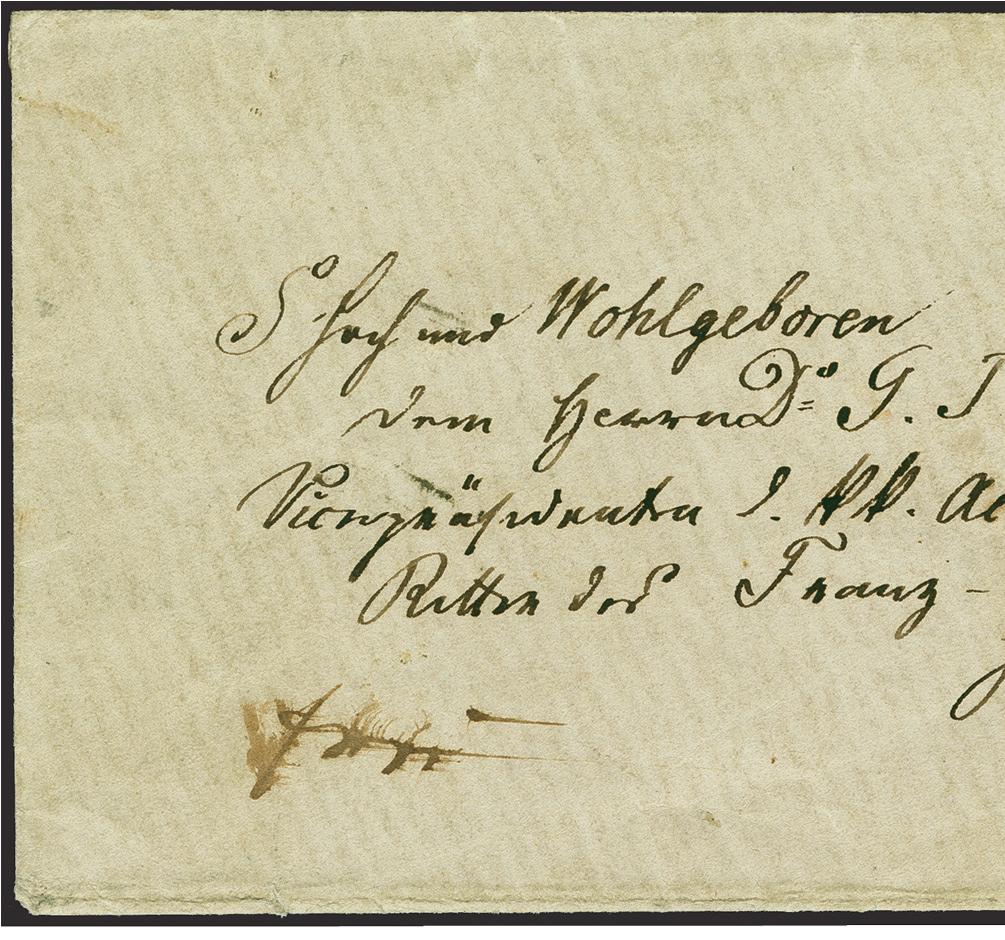 Sr Hoch und Wohlgeboren
dem Herrn Dr. G. J
Vicepräsidenten d. kk. Ac
Ritter des Franz -